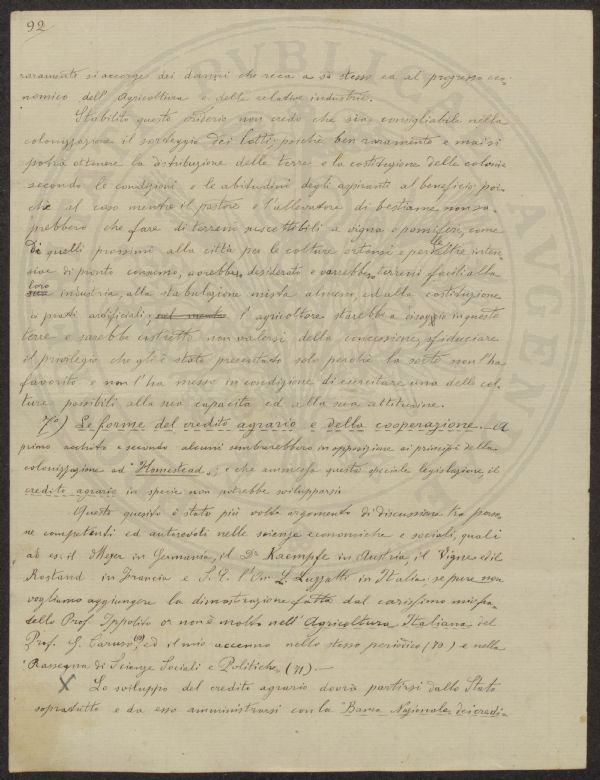 92
raramente si accorge dei danni che reca a sè stesso ed al progresso eco-
nomico dell'Agricoltura e delle relative industrie.
Stabilito questo criterio non credo che sia consigliabile nella
colonizzazione il sorteggio dei lotti; poichè ben raramente e mai si
potrà ottenere la distribuzione delle terre e la costituzione delle colonie
secondo le condizioni e le abitudini degli aspiranti al beneficio poi-
chè al caso mentre il pastore e l'allevatore di bestiame non sa-
prebbero che fare di terreni suscettibili a vigna e pomiferi, come
di quelli prossimi alla città per le colture ortensi e per le altre inten-
sive di pronto consumo, avrebbe desiderato e sarebbero terreni facili alla
loro industria, alla stabulazione mista almeno, ed alla costituzione
di prati artificiali; nel mentre l'agricoltore starebbe a disagio in queste
terre e sarebbe costretto non valersi della concessione, sfiduciare
il privilegio che gli è stato presentato solo perchè la sorte non l'ha
favorito e non l'ha messo in condizione di esercitare una delle col-
ture possibili alla sua capacità ed alla sua attitudine.
7o) Le forme del credito agrario e della cooperazione. - A
primo acchito e secondo alcuni sembrerebbero in opposizione ai principi della
colonizzazione ad "Homestead"; e che ammessa questa speciale legislazione, il
credito agrario in specie non potrebbe svilupparsi.
Questo quesito è stato più volte argomento di discussione tra perso-
ne competenti ed autorevoli nelle scienze economiche e sociali, quali
ad es. il Meyer in Germania, il Dr Kaempfe in Austria, il Vigne ed il
Rostand in Francia e S. E. l'On. L. Luzzatti in Italia: se pure non
vogliamo aggiungere la dimostrazione fatta dal carissimo mio fra-
tello Prof. Ippolito or non è molto nell'"Agricoltura Italiana" del
Prof. G. Caruso, ed il mio accenno nello stesso periodico (70) e nella
"Rassegna di Scienze Sociali e Politiche" (71). -
X Lo sviluppo del credito agrario dovrà partirsi dallo Stato
sopratutto e da esso amministrarsi con la "Banca Nazionale dei credi-